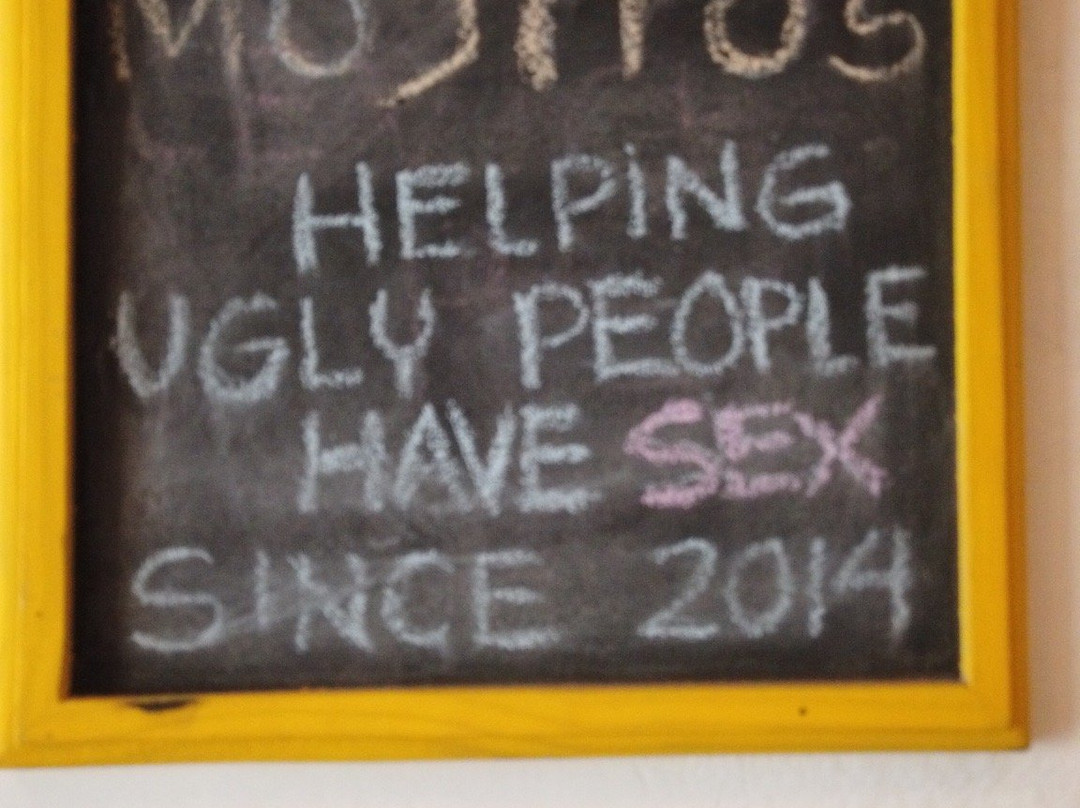 MOJITOS
HELPING
UGLY PEOPLE
HAVE SEX
SINCE 2014